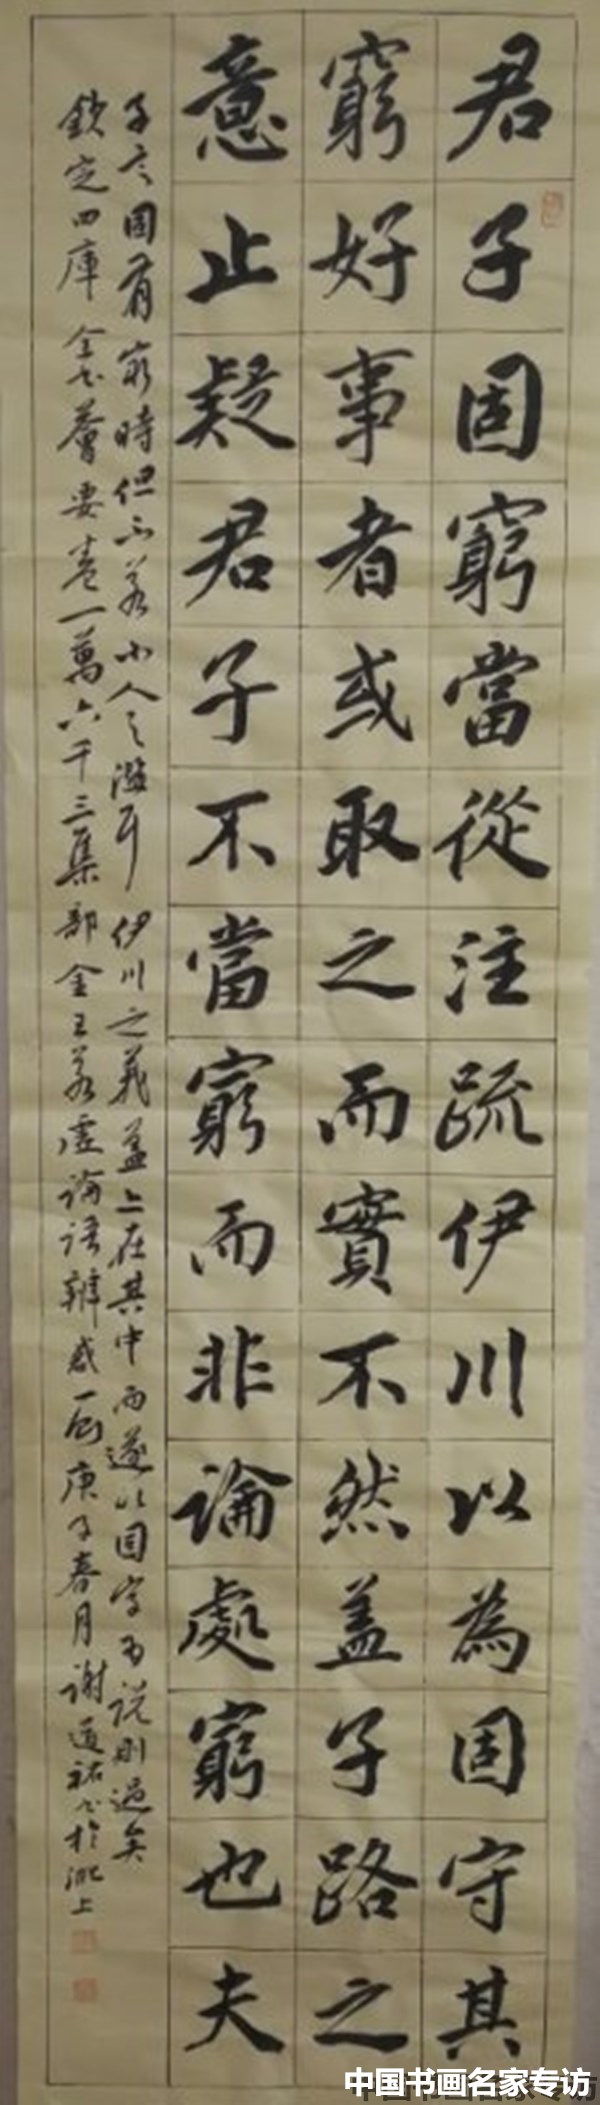 君子固窮當從注疏伊川以為固守其
窮好事者或取之而實不然蓋子路之
意止疑君子不當窮而非論處窮也夫
子言固有窮時但不若小人之濫耳伊川之義蓋亦在其中而遂以固字為說則過矣
欽定四庫全書薈要卷一萬六千三集部金王若虛論語辨惑一則庚子春月謝道祐書於淝上
中国书画名家专访